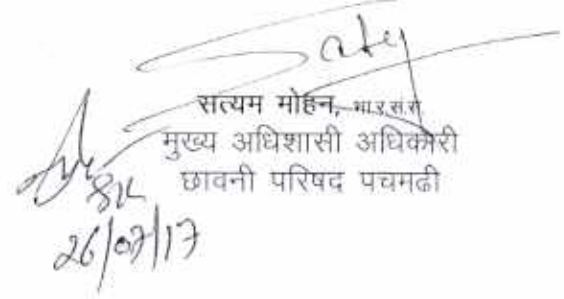 सत्यम मोहन, भा.र.सं.से
मुख्य अधिशासी अधिकारी
छावनी परिषद पचमढी
26/07/17